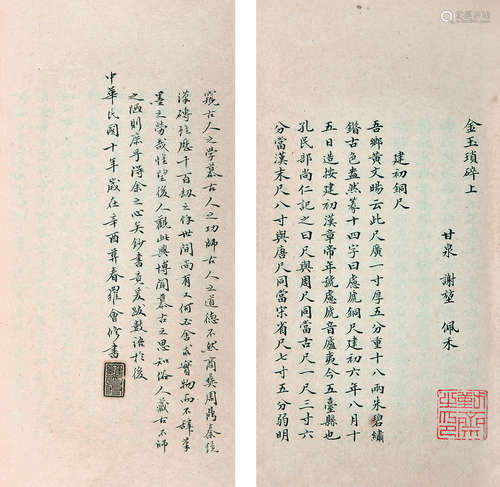 金玉瑣碎上
甘泉 謝堃 佩禾
建初銅尺
吾鄉黃文暘云此尺廣一寸厚五分重十八兩朱碧繡
鏽古色盎然篆十四字曰慮俿銅尺建初六年八月十
五日造按建初漢章帝年號慮俿音廬夷今五臺縣也
孔民部尚仁記之曰尺與周尺同當古尺一尺三寸六
分當漢末尺八寸與唐尺同當宋省尺七寸五分弱明
窺古人之學慕古人之功師古人之道德不然商彝周鼎秦
漢磚種歷千百劫之後世間尚有又何玉舍求實物而不辭筆
墨之勞哉惟望後人觀此興博聞慕古之思知俗人藏古不師
之陋則庶乎得余之心矣鈔書竟爰跋數語於後
中華民國十年歲在辛酉暮春羅會修書